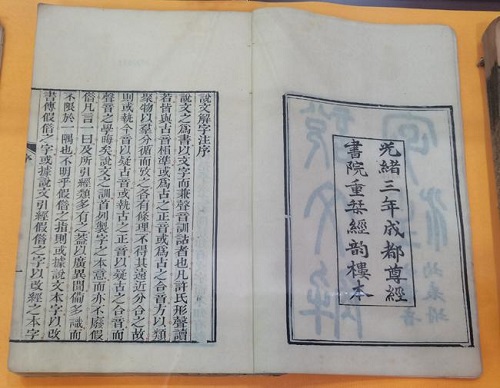 光緒三年成都尊經
書院重栞經韵樓本
說文解字注序
說文之為書以文字而兼聲音訓詁者也凡許氏形聲讀
若皆與古音相準或為古之正音或為古之合音方以類
聚物以羣分循而攷之各有條理不得其遠近分合之故
則或執今音以疑古音或執古之正音以疑古之合音而
聲音之學晦矣說文之訓首列製字之本意而亦不廢假
借凡言一曰及所引經類多有之蓋以廣異聞備多識而
不限於一隅也不明乎假借之指則或據說文本字以改
書傳假借之字或據說文引經假借之字以改經之本字